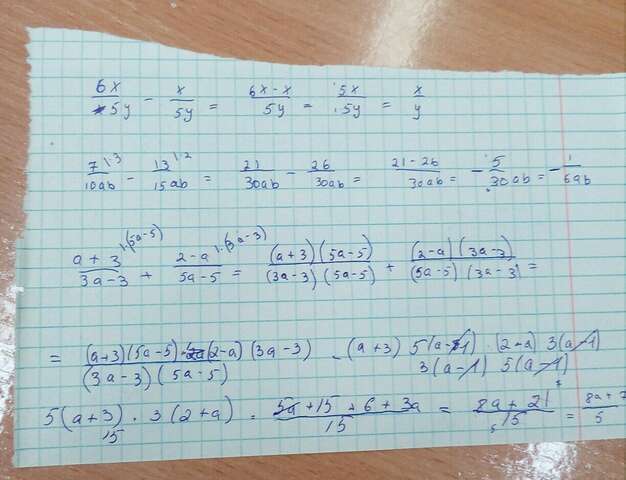 6x/5y - x/5y = 6x-x/5y = 5x/5y = x/y
7\3/10ab - 13\2/15ab = 21/30ab - 26/30ab = 21-26/30ab = -5/30ab = -1/6ab
a+3\·(5a-5)/3a-3 + 2-a\·(3a-3)/5a-5 = (a+3)(5a-5)/(3a-3)(5a-5) + (2-a)(3a-3)/(5a-5)(3a-3) =
= (a+3)(5a-5)+(2-a)(3a-3)/(3a-3)(5a-5) = (a+3) 5(a-1) · (2+a) 3(a-1)/3(a-1) 5(a-1)
5(a+3) · 3(2+a)/15 = 5a+15+6+3a/15 = 8a+21/15 = 8a+7/5